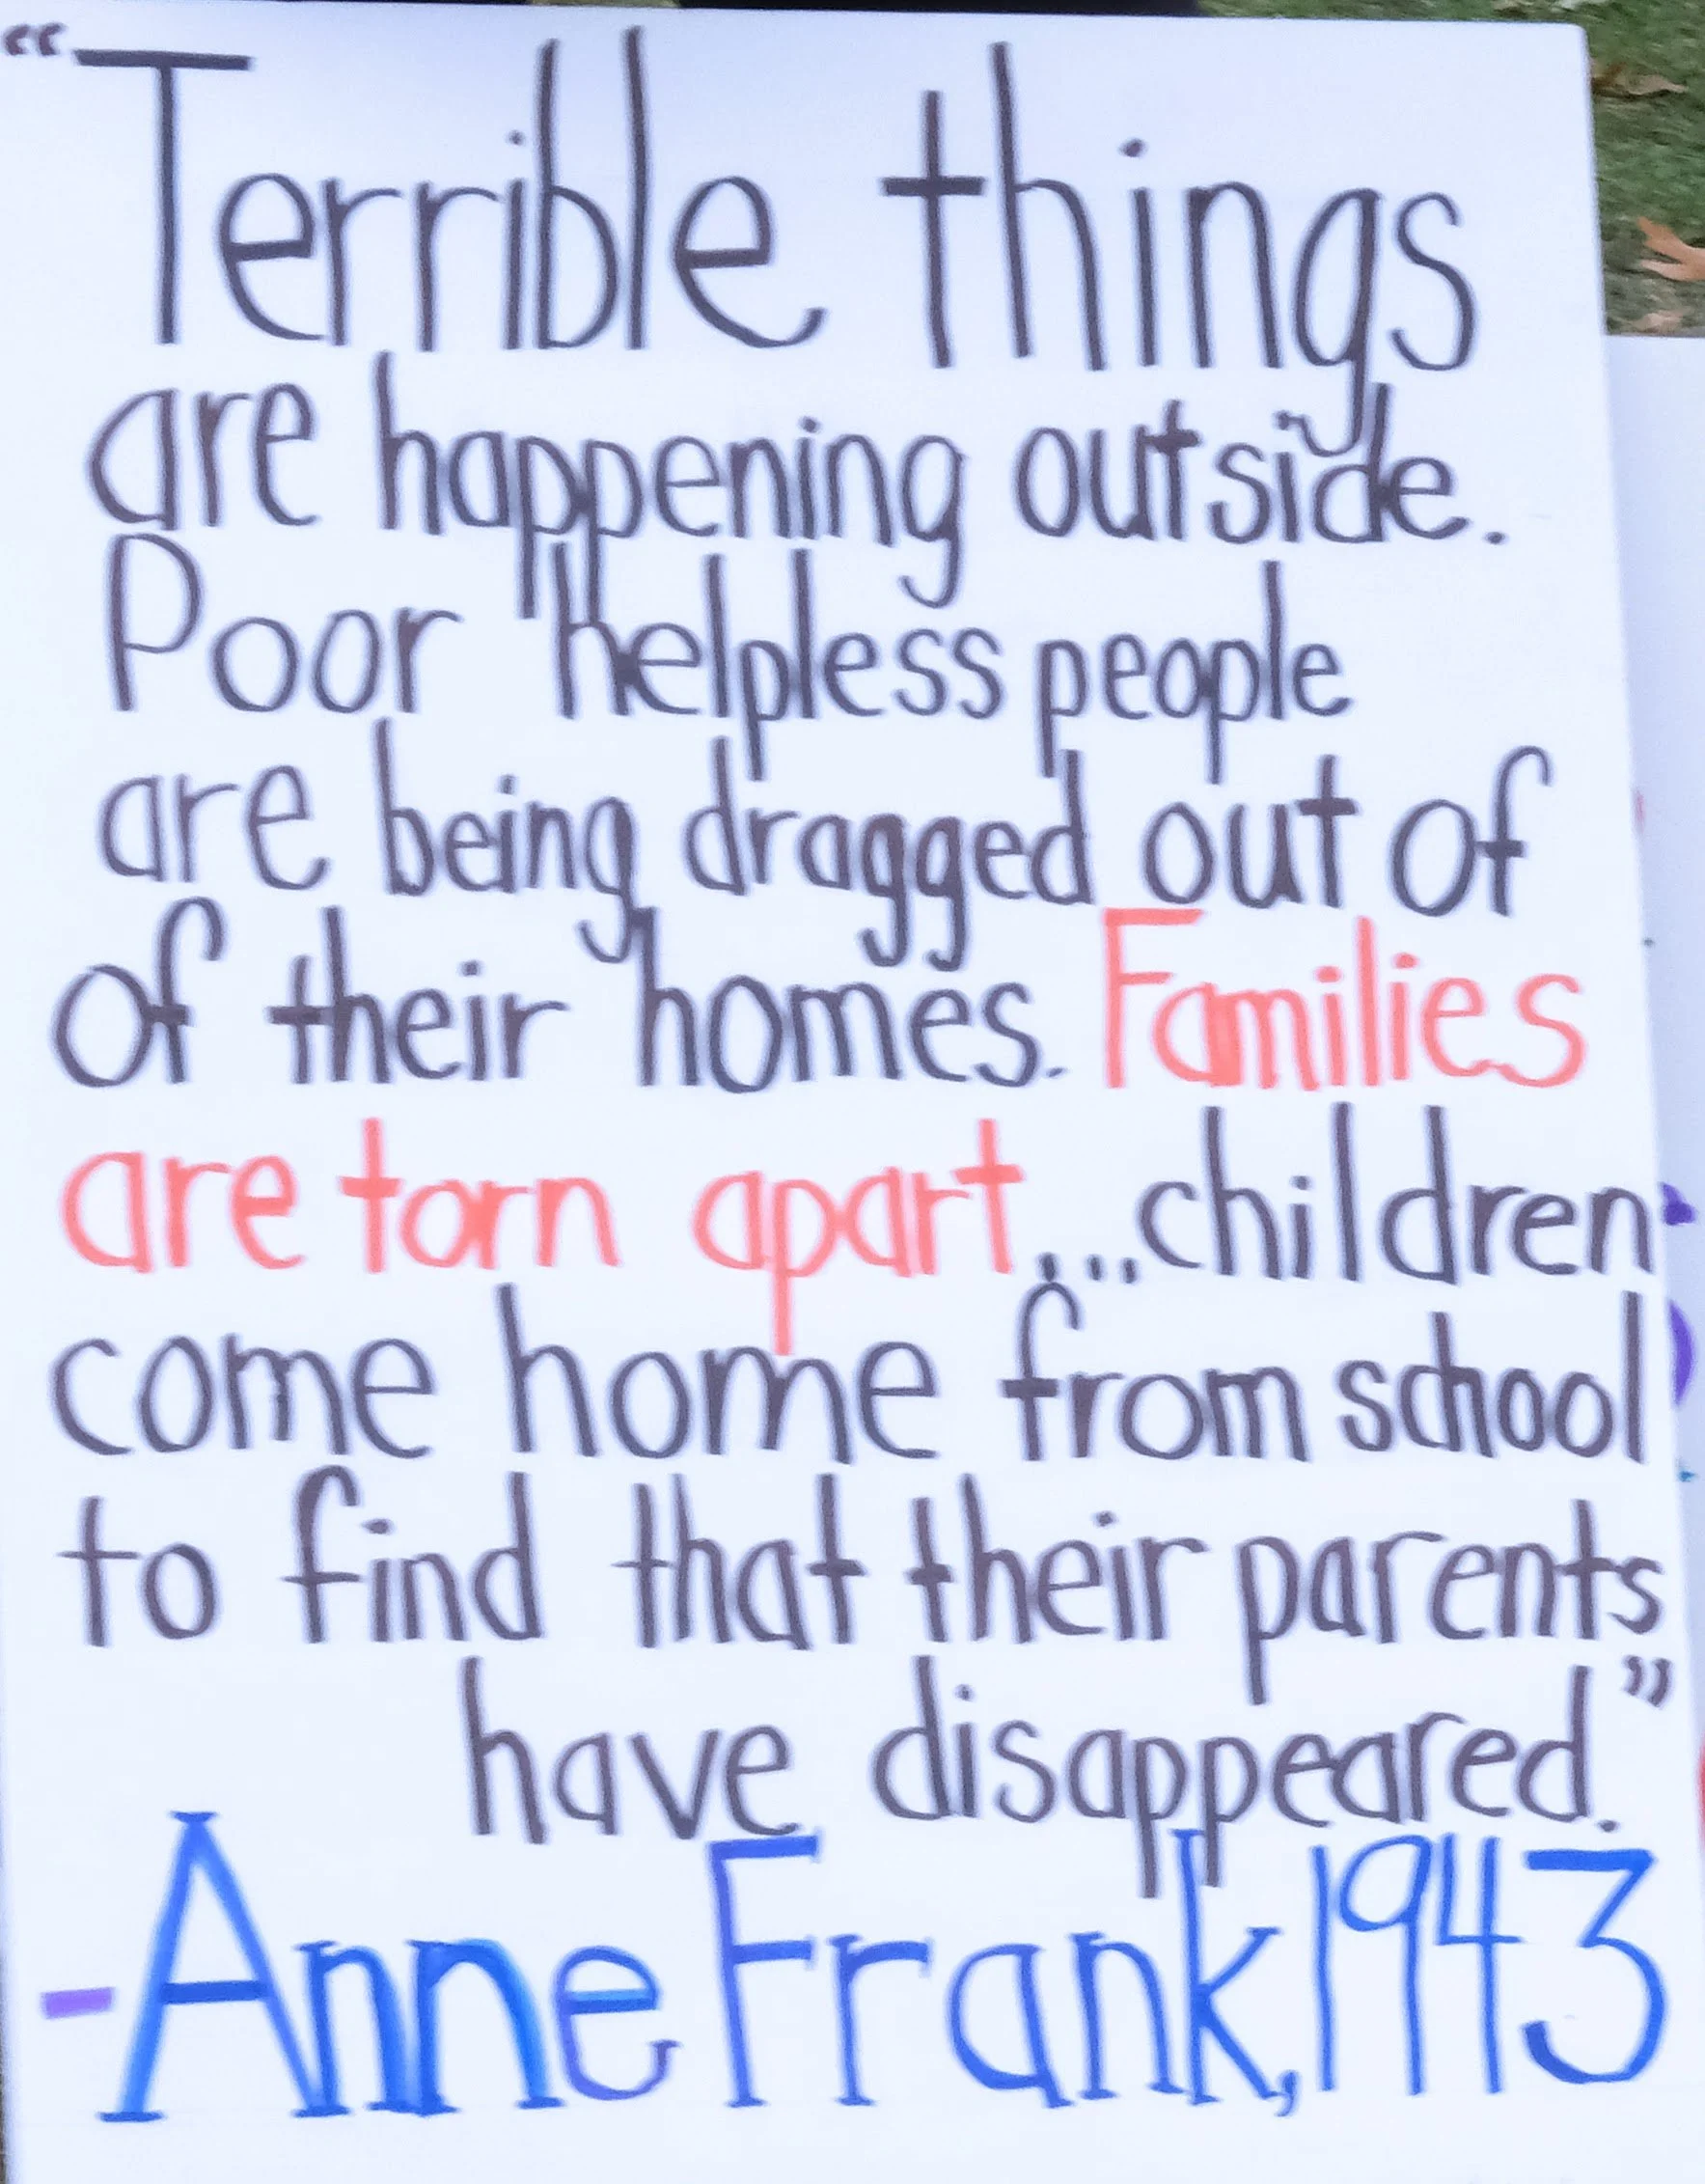 “Terrible things
are happening outside.
Poor helpless people
are being dragged out of
of their homes. Families
are torn apart...children
come home from school
to find that their parents
have disappeared.”
-Anne Frank, 1943